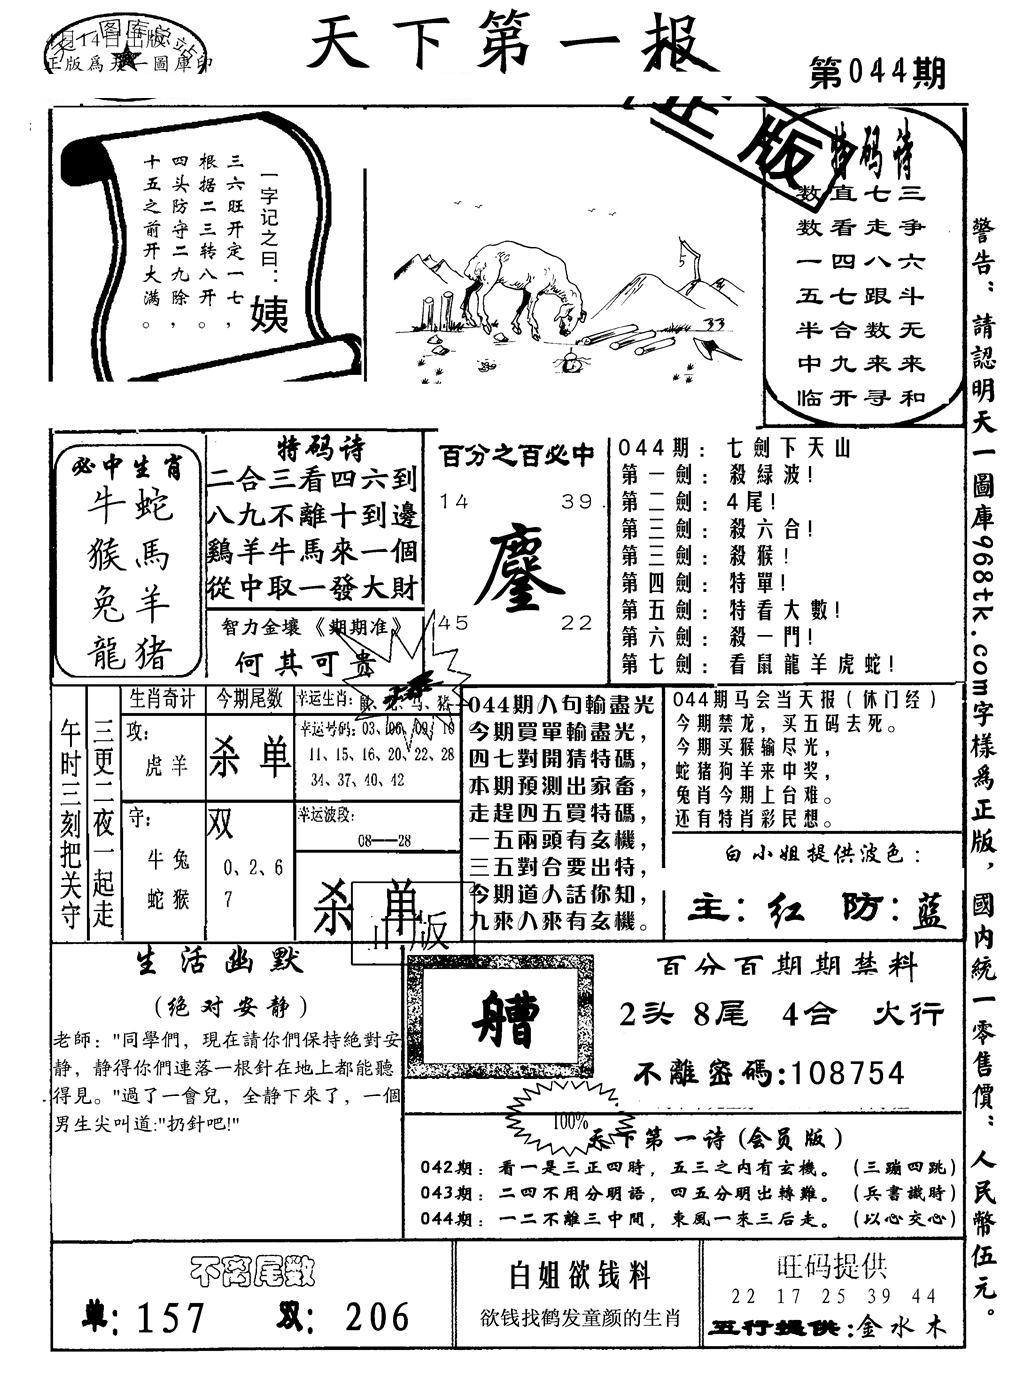 天下第一报
第044期
14日出版
正版爲天一圖庫印
一字记之曰：
姨
三六旺开定一七，
根据二三转八开。
四头防守二九除，
十五之前开大满。
正版
特码诗
三争六斗无来和
七走八跟数来寻
直看四七合九开
数数一五半中临
警告：請認明天一圖庫968tk.com字樣爲正版，國内統一零售價：人民幣伍元。
必中生肖
牛蛇
猴馬
兔羊
龍猪
特码诗
二合三看四六到
八九不離十到邊
鷄羊牛馬來一個
從中取一發大財
智力金壤《期期准》
何其可贵
百分之百必中
14 39
45 22
044期：七劍下天山
第一劍：殺緑波！
第二劍：4尾！
第三劍：殺六合！
第三劍：殺猴！
第四劍：特單！
第五劍：特看大數！
第六劍：殺一門！
第七劍：看鼠龍羊虎蛇！
午时三刻把关守
三更二夜一起走
生肖奇计
攻：
虎羊
守：
牛兔
蛇猴
今期尾数
杀单
双
0、2、6
7
幸运生肖：鼠、龙、马、猪
幸运号码：03、06、09、10
11、15、16、20、22、28
34、37、40、42
幸运波段：
08——28
杀单
正版
044期八句輸盡光
今期買單輸盡光，
四七對開猜特碼，
本期預測出家畜，
走趕四五買特碼，
一五兩頭有玄機，
三五對合要出特，
今期道人話你知，
九來八來有玄機。
044期马会当天报（休门经）
今期禁龙，买五码去死。
今期买猴输尽光，
蛇猪狗羊来中奖，
兔肖今期上台难。
还有特肖彩民想。
白小姐提供波色：
主：红 防：蓝
生活幽默
(绝对安静)
老師："同學們，現在請你們保持絶對安
静，静得你們連落一根針在地上都能聽
得見。"過了一會兒，全静下來了，一個
男生尖叫道:"扔針吧!"
艚
百分百期期禁料
2头 8尾 4合 火行
不離密碼:108754
100%
天下第一诗(会员版)
042期：看一是三正四時，五三之内有玄機。（三蹦四跳）
043期：二四不用分明語，四五分明出轉難。（兵書識時）
044期：一二不離三中間，東風一來三后走。（以心交心）
不离尾数
单：157 双：206
白姐欲钱料
欲钱找鹤发童颜的生肖
旺码提供
22 17 25 39 44
五行提供：金水木